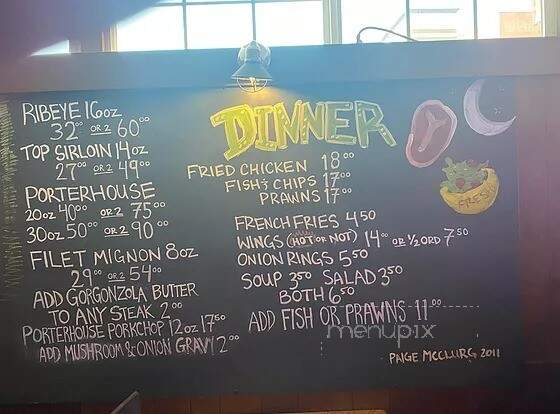 RIBEYE 16oz
32⁰⁰ OR 2 60⁰⁰
TOP SIRLOIN 14oz
27⁰⁰ OR 2 49⁰⁰
PORTERHOUSE
20oz 40⁰⁰ OR 2 75⁰⁰
30oz 50⁰⁰ OR 2 90⁰⁰
FILET MIGNON 8oz
29⁰⁰ OR 2 54⁰⁰
ADD GORGONZOLA BUTTER
TO ANY STEAK 2⁰⁰
PORTERHOUSE PORKCHOP 12oz 17⁵⁰
ADD MUSHROOM & ONION GRAVY 2⁰⁰
DINNER
FRIED CHICKEN 18⁰⁰
FISH & CHIPS 17⁰⁰
PRAWNS 17⁰⁰
FRENCH FRIES 4⁵⁰
WINGS (HOT OR NOT) 14⁰⁰ OR 1/2 ORD 7⁵⁰
ONION RINGS 5⁵⁰
SOUP 3⁵⁰ SALAD 3⁵⁰
BOTH 6⁵⁰
ADD FISH OR PRAWNS 11⁰⁰
FRESH
menupix
PAIGE MCCLURG 2011